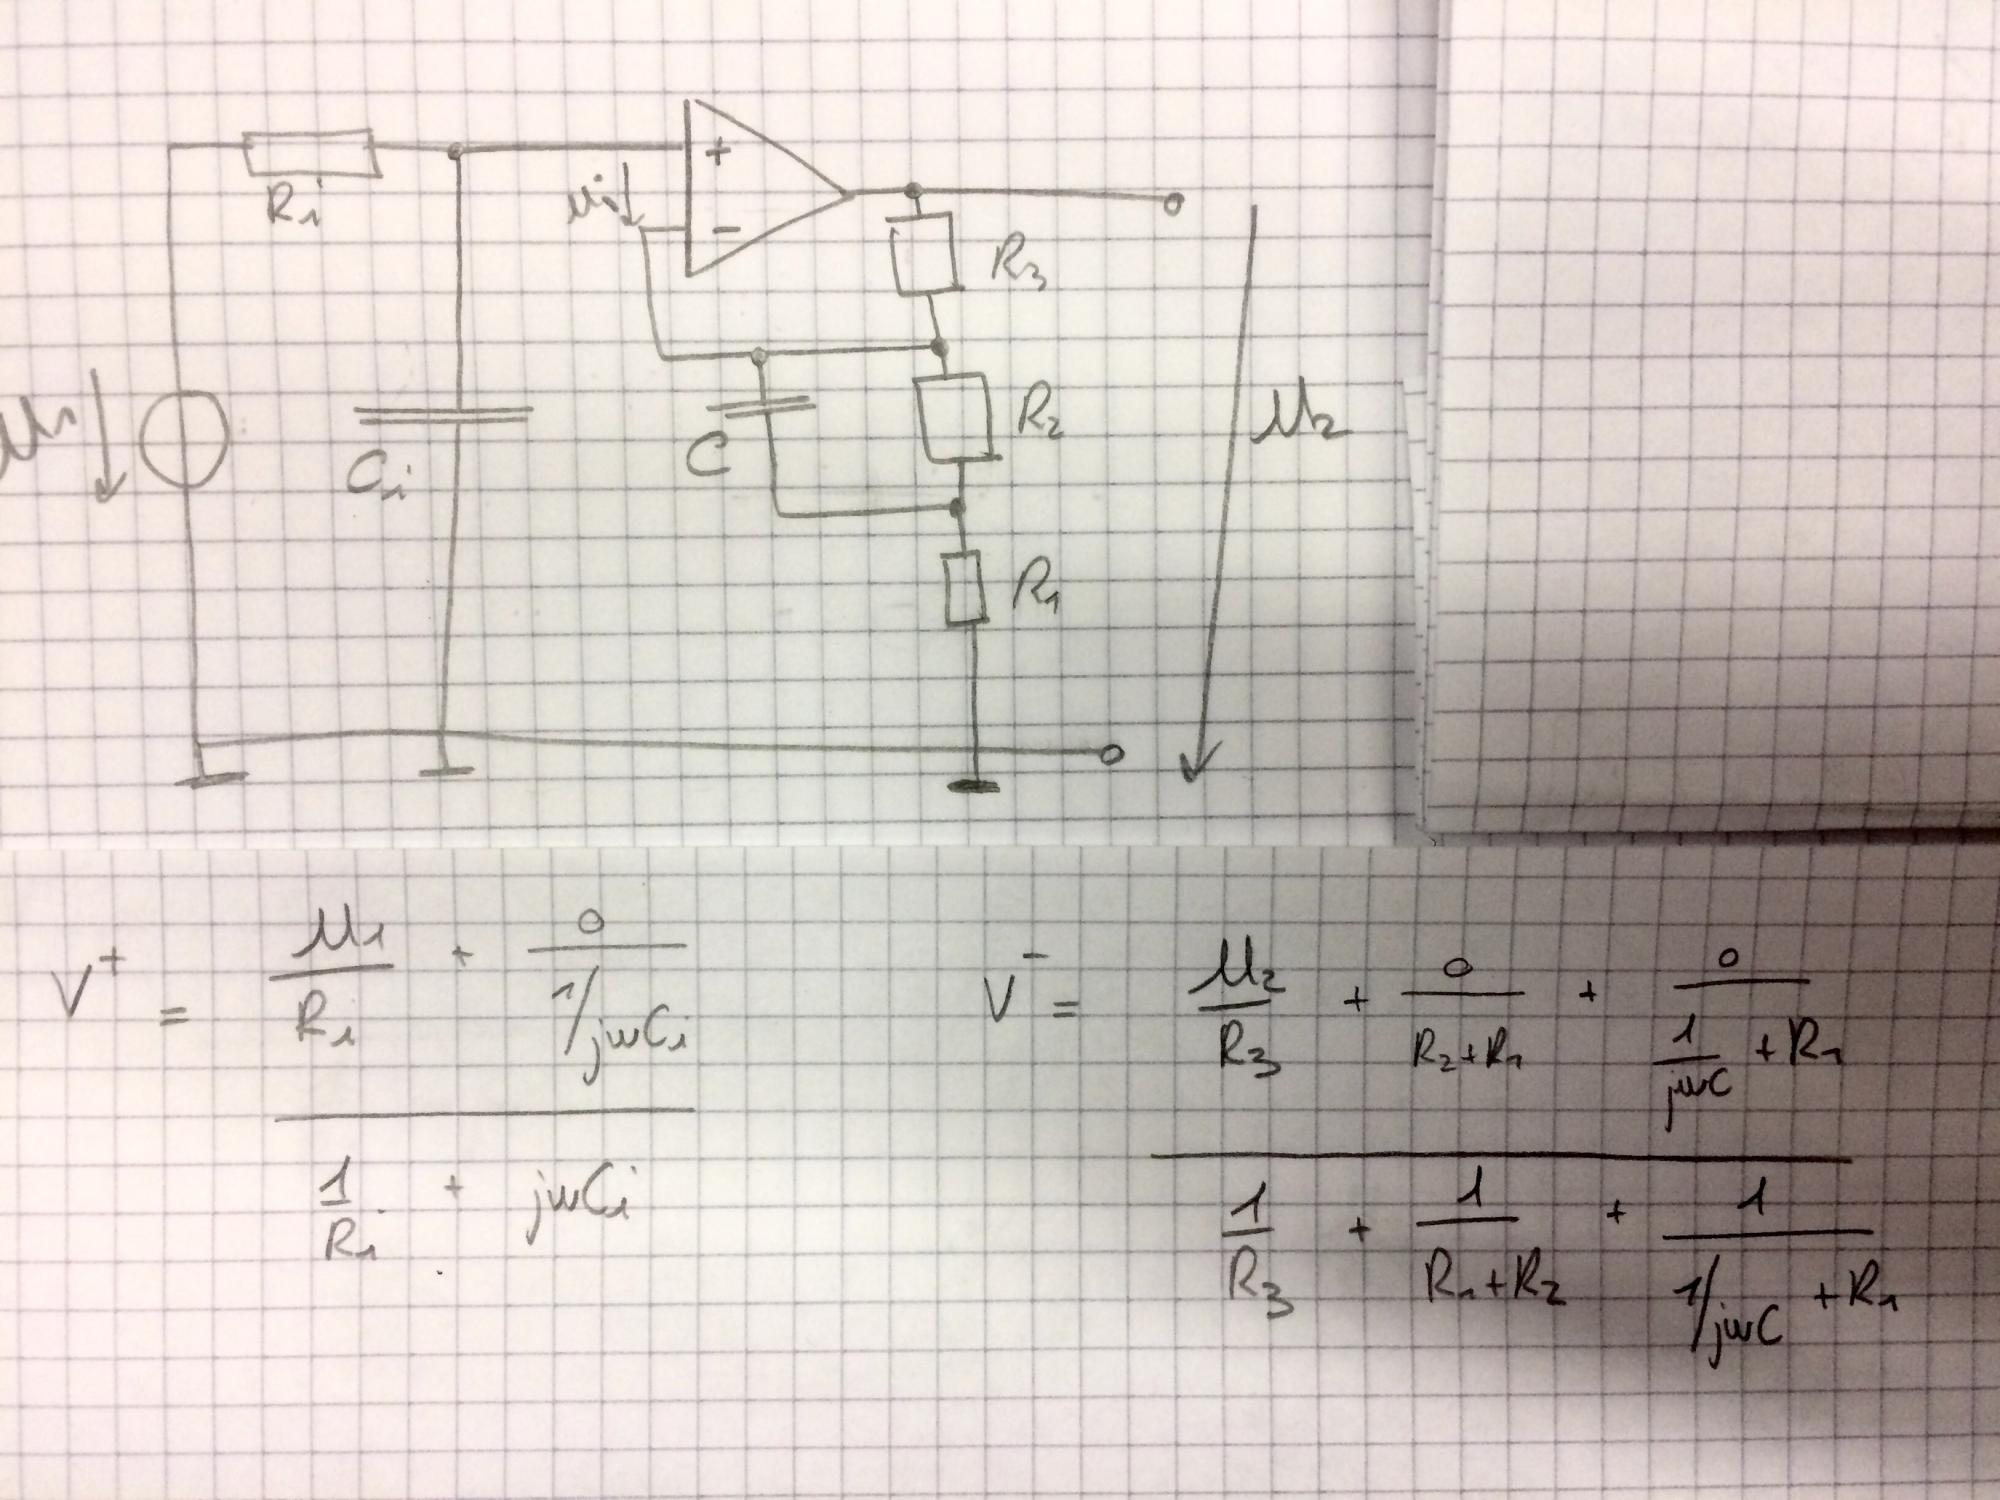 Ri
+
ui
-
R3
u1
Ci
C
R2
u2
R1
V+ = (u1/Ri + 0/(1/jωCi)) / (1/Ri + jωCi)
V- = (u2/R3 + 0/(R2+R1) + 0/(1/jωC + R1)) / (1/R3 + 1/(R1+R2) + 1/(1/jωC + R1))